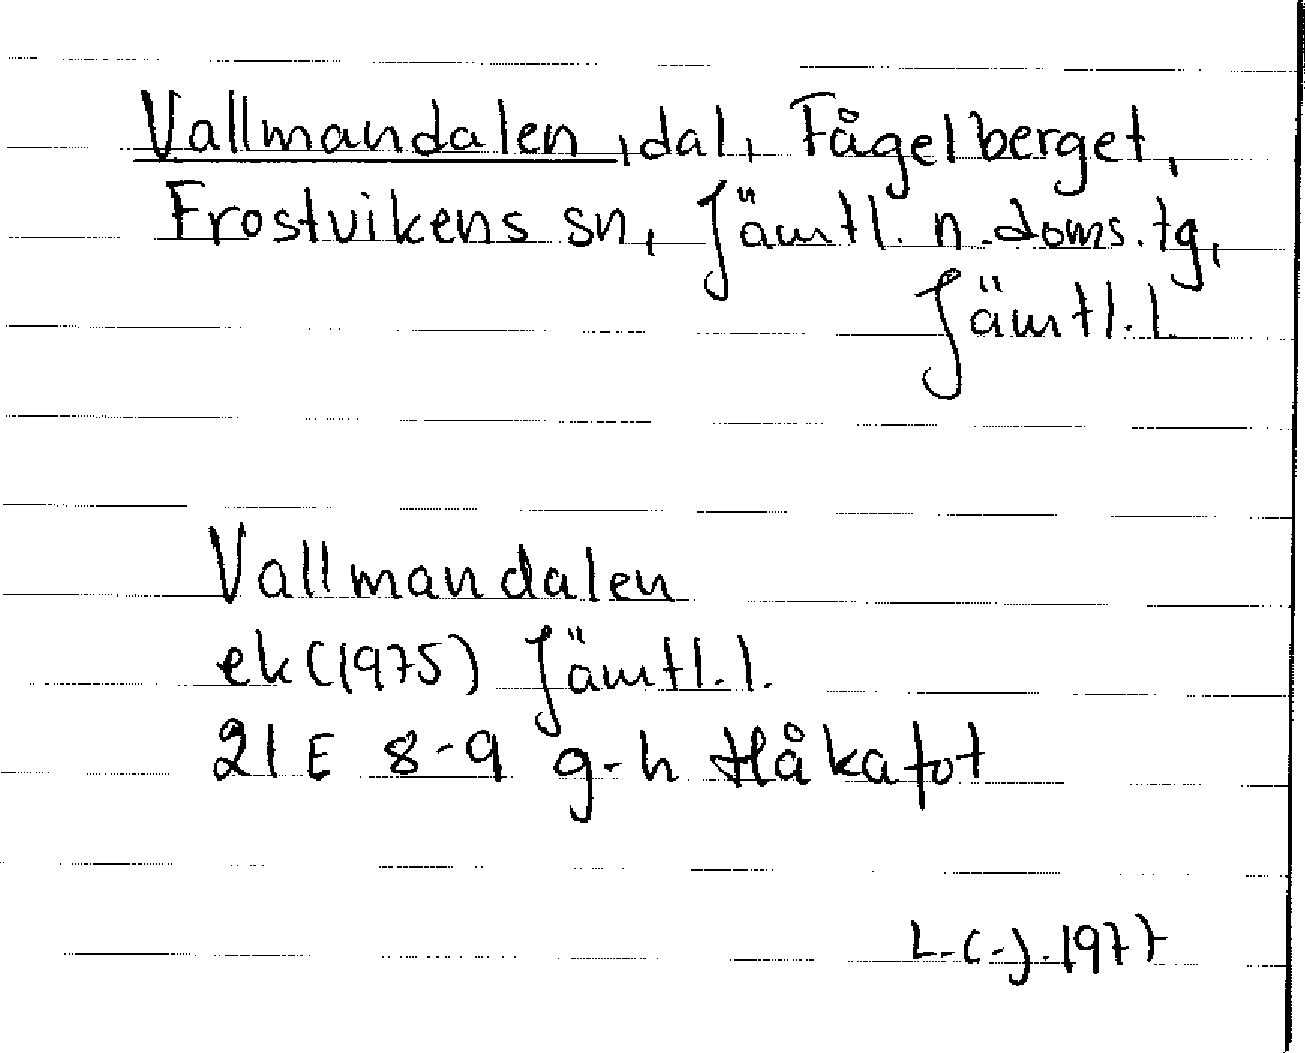 Vallmandalen, dal, Fågelberget,
Frostvikens sn, Jämtl. n. doms. tg,
Jämtl. l
Vallmandalen
ek (1975) Jämtl. l.
21 E 8-9 g-h Håkafot
L.C-J. 1977